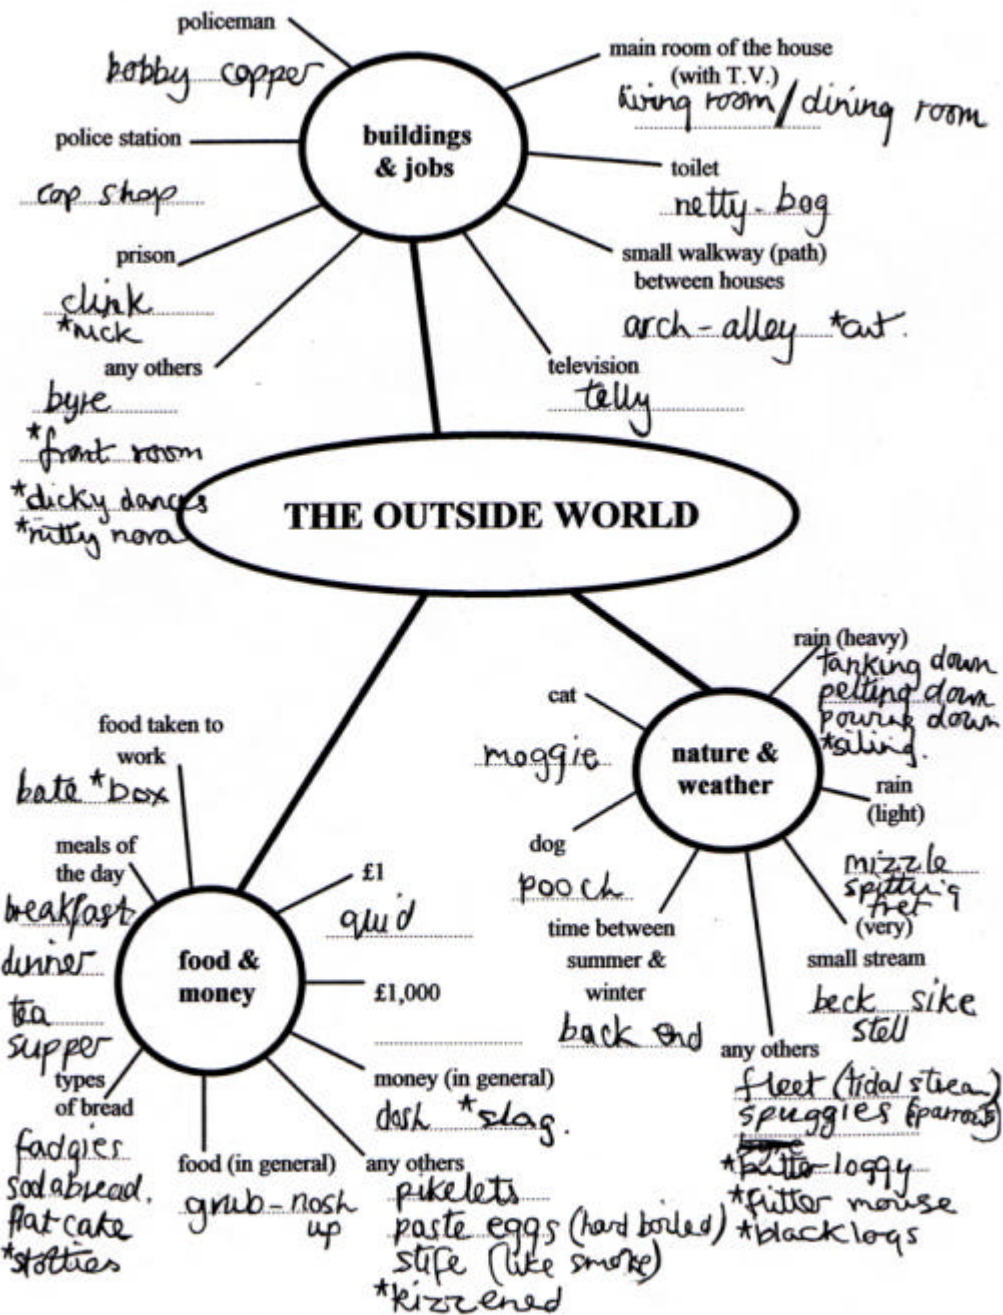 policeman
bobby copper
police station
cop shop
prison
clink
*nick
any others
byre
*front room
*dicky dances
*nitty nora
buildings
& jobs
main room of the house
(with T.V.)
living room / dining room
toilet
netty - bog
small walkway (path)
between houses
arch - alley *cut.
television
telly
THE OUTSIDE WORLD
food taken to
work
bate *box
meals of
the day
breakfast
dinner
tea
supper
types
of bread
fadgies
sodabread.
flat cake
*stotties
food &
money
£1
quid
£1,000
money (in general)
dosh *slag.
food (in general)
grub - nosh
up
any others
pikelets
paste eggs (hard boiled)
stife (like smoke)
*kizzened
nature &
weather
cat
moggie
dog
pooch
time between
summer &
winter
back end
rain (heavy)
tanking down
pelting down
pouring down
*siling.
rain
(light)
mizzle
spitting
fret
(very)
small stream
beck sike
stell
any others
fleet (tidal stream)
spuggies (sparrows)
*butter loggy
*flitter mouse
*blacklogs